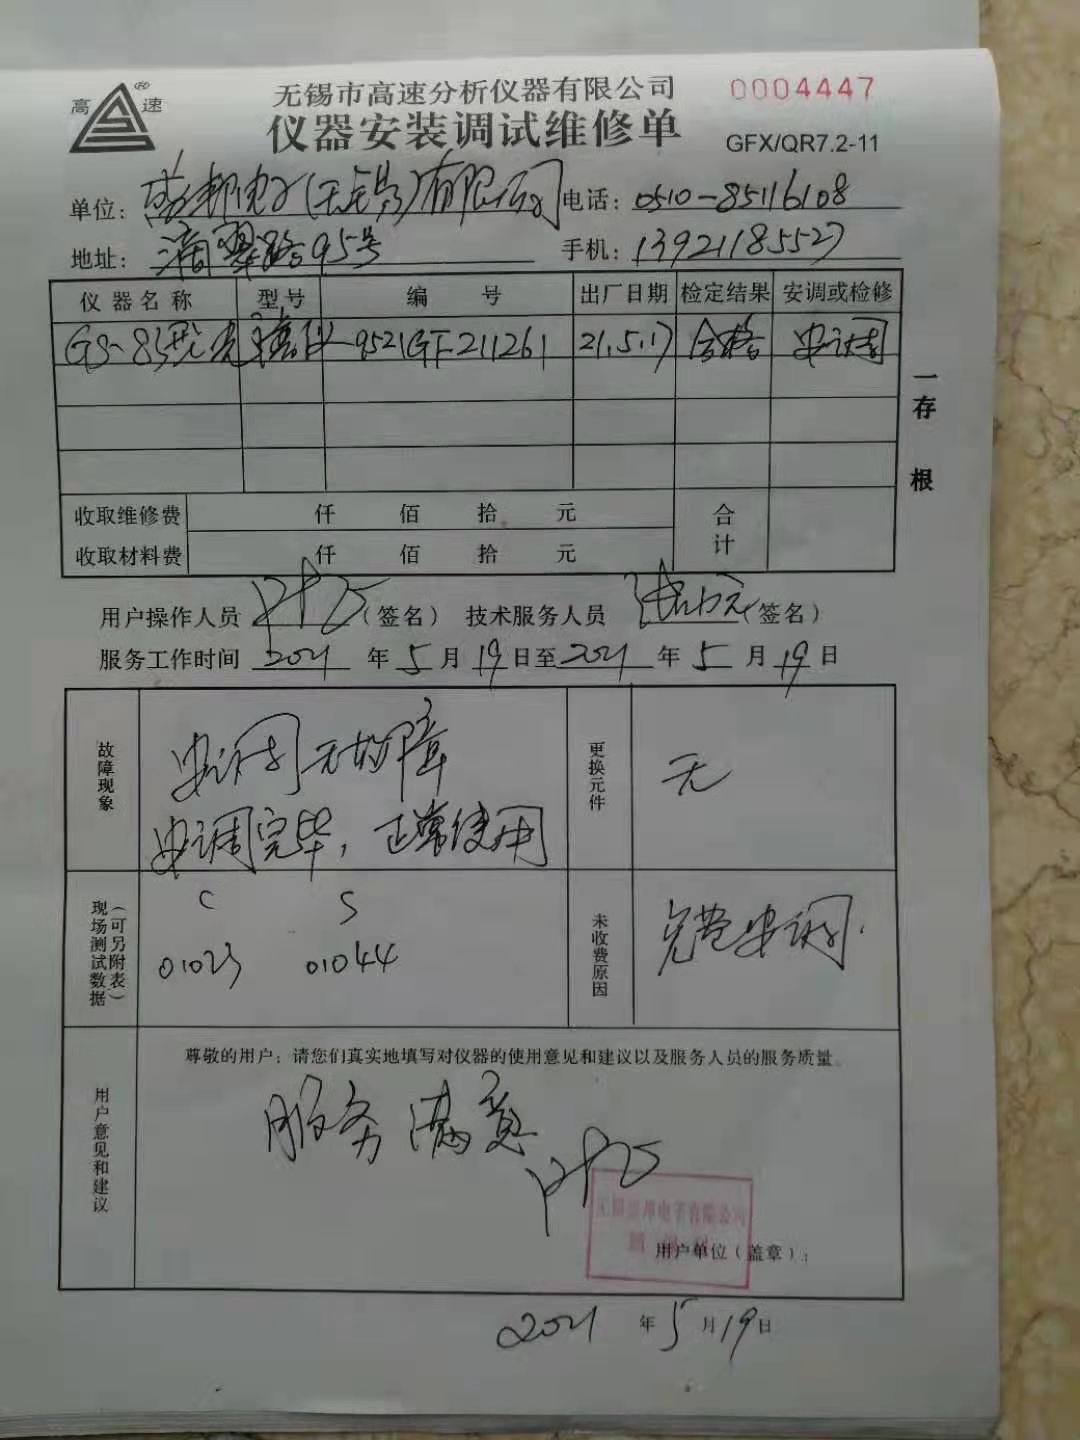 高 速 ®
无锡市高速分析仪器有限公司 0004447
仪器安装调试维修单 GFX/QR7.2-11
单位: 盛邦电子(无锡)有限公司 电话: 0510-85116108
地址: 滴翠路95号 手机: 13921185527
仪器名称 型号 编号 出厂日期 检定结果 安调或检修
GS-8S型 9521GF211261 21.5.17 合格 安调
一存根
收取维修费 仟 佰 拾 元 合计
收取材料费 仟 佰 拾 元
用户操作人员 (签名) 技术服务人员 (签名)
服务工作时间 2021 年 5 月 19 日至 2021 年 5 月 19 日
故障现象 安调无故障 更换元件 无
安调完毕,正常使用
现场测试数据(可另附表) C S 未收费原因 免费安调.
01023 01044
尊敬的用户:请您们真实地填写对仪器的使用意见和建议以及服务人员的服务质量。
用户意见和建议
服务满意
用户单位(盖章):
2021 年 5 月 19 日